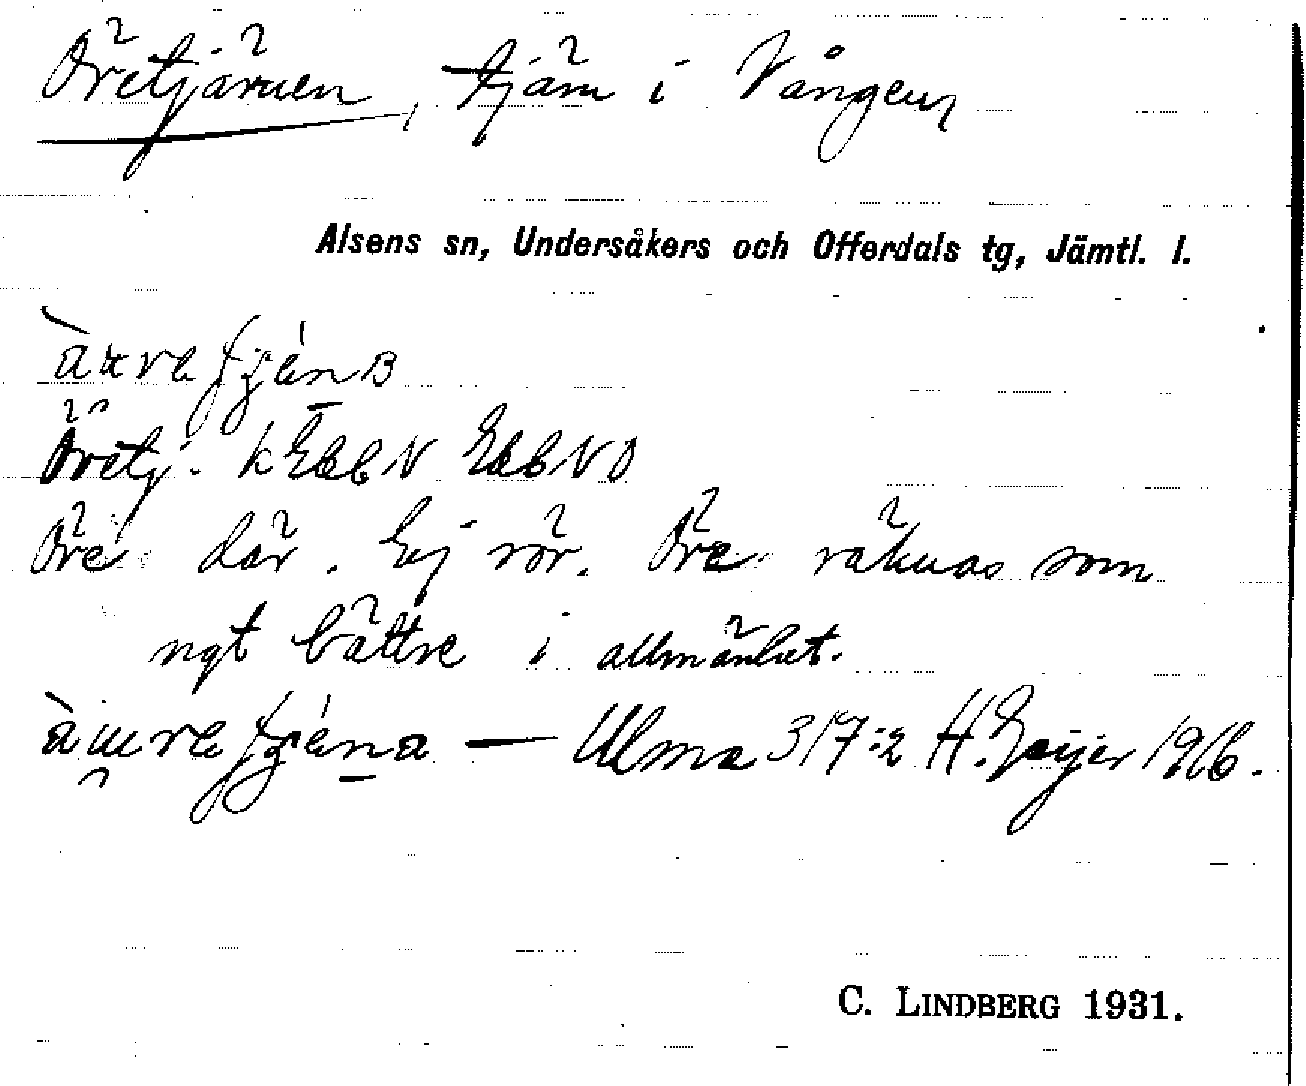 Öretjärnen, tjärn i Vången
Alsens sn, Undersåkers och Offerdals tg, Jämtl. l.
Öretj.
Öre där. Ej rör. Öre räknas som
ngt bättre i allmänhet.
— Ulma 317:2 H. Geijer 1916.
C. LINDBERG 1931.